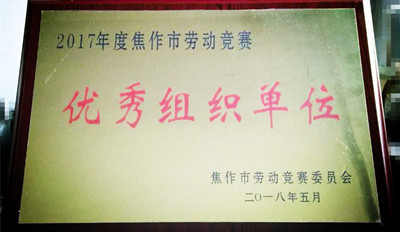 2017年度焦作市劳动竞赛
优秀组织单位
焦作市劳动竞赛委员会
二〇一八年五月